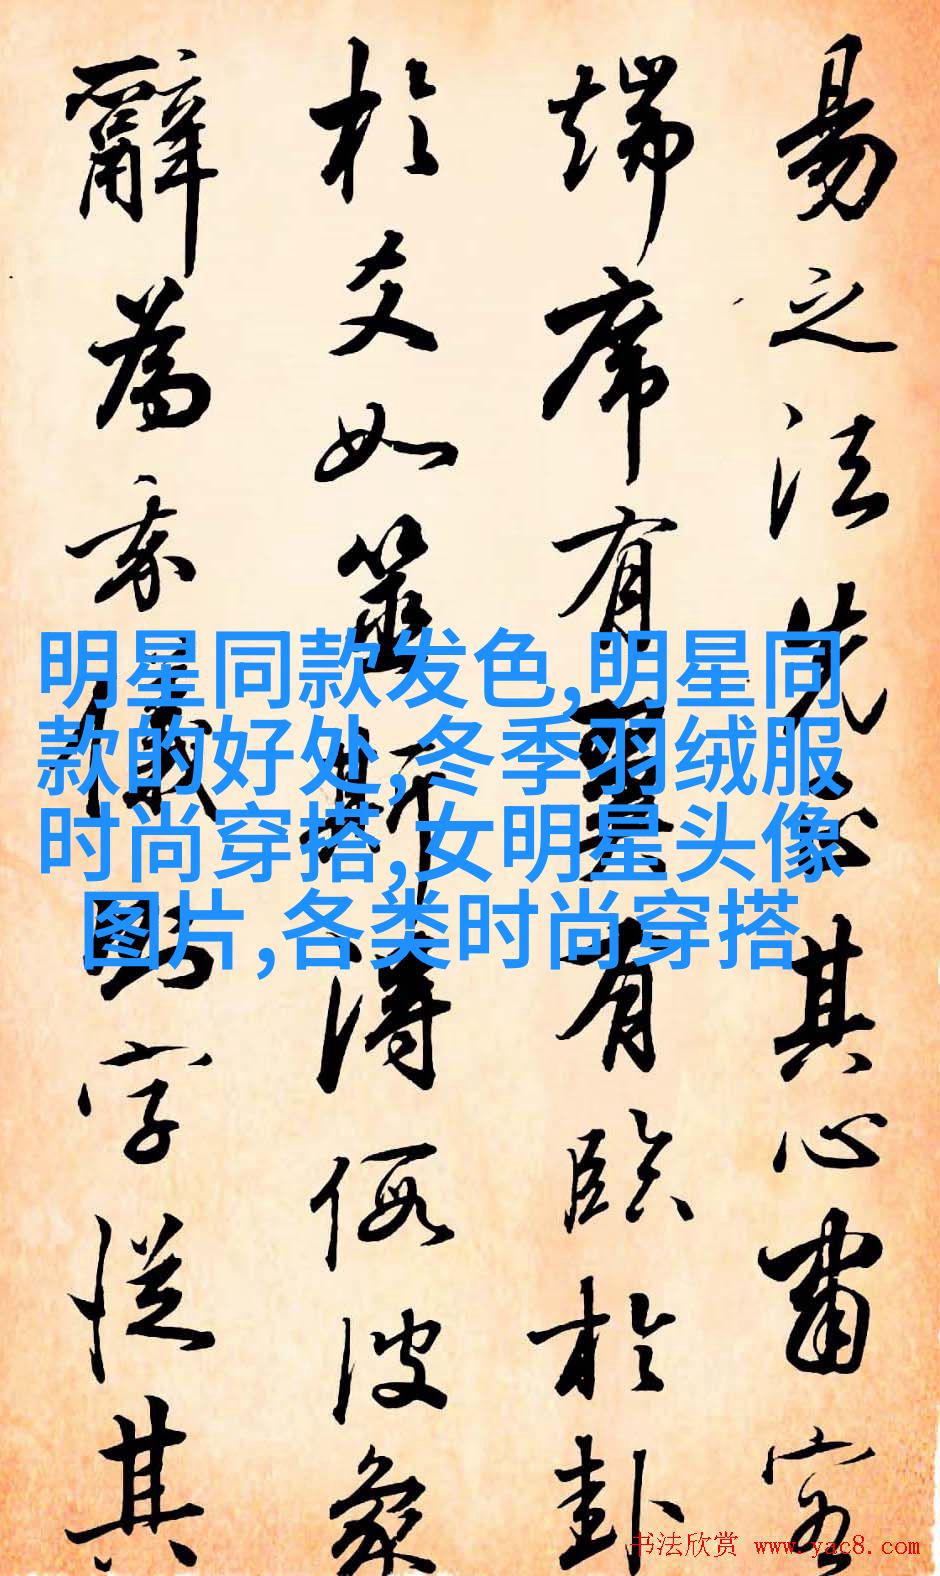 易之法先正其心肅容
端席有翼有臨於卦
於爻如筮斯得假彼象
辭為我儀則字從其
明星同款发色,明星同
款的好处,冬季羽绒服
时尚穿搭,女明星头像
图片,各类时尚穿搭
书法欣赏 www.yac8.com